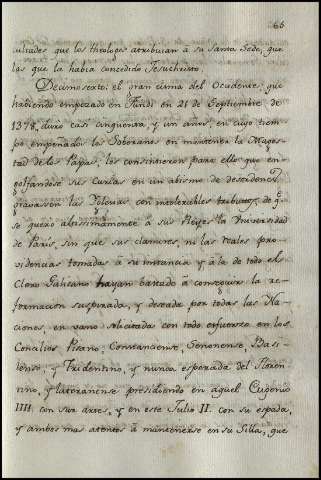 66
cultades que los theologos atribuian à su Santa Sede, que
las que la habia concedido Jesuchristo.
Decimosexto: el gran cisma del Ocidente: que
habiendo empezado en Fundi en 21 de Septiembre de
1378, duró casi cinquenta, y un años, en cuyo tiem-
po empeñados los Soberanos en mantener la Mages-
tad de los Papas, les consintieron para ello que en-
golfandose sus Curias en un abismo de desordenes
gravasen las Iglesias con inexorables tributos, de q.e
se quexó altissimamente à sus Reyes la Universidad
de Paris, sin que sus clamores, ni las reales pro-
videncias tomadas à su instancia y à la de todo el
Clero Galicano hayan bastado à conseguir la re-
formacion suspirada, y deseada por todas las Na-
ciones, en vano solicitada con todo esfuerzo en los
Concilios Pisano, Constanciense, Senonense, Basi-
liense, y Tridentino, y nunca esperada del Floren-
tino, y Lateranense presidiendo en aquel Eugenio
IIII. con sus artes, y en este Julio II. con su espada,
y ambos mas atentos à mantenerse en su Silla, que